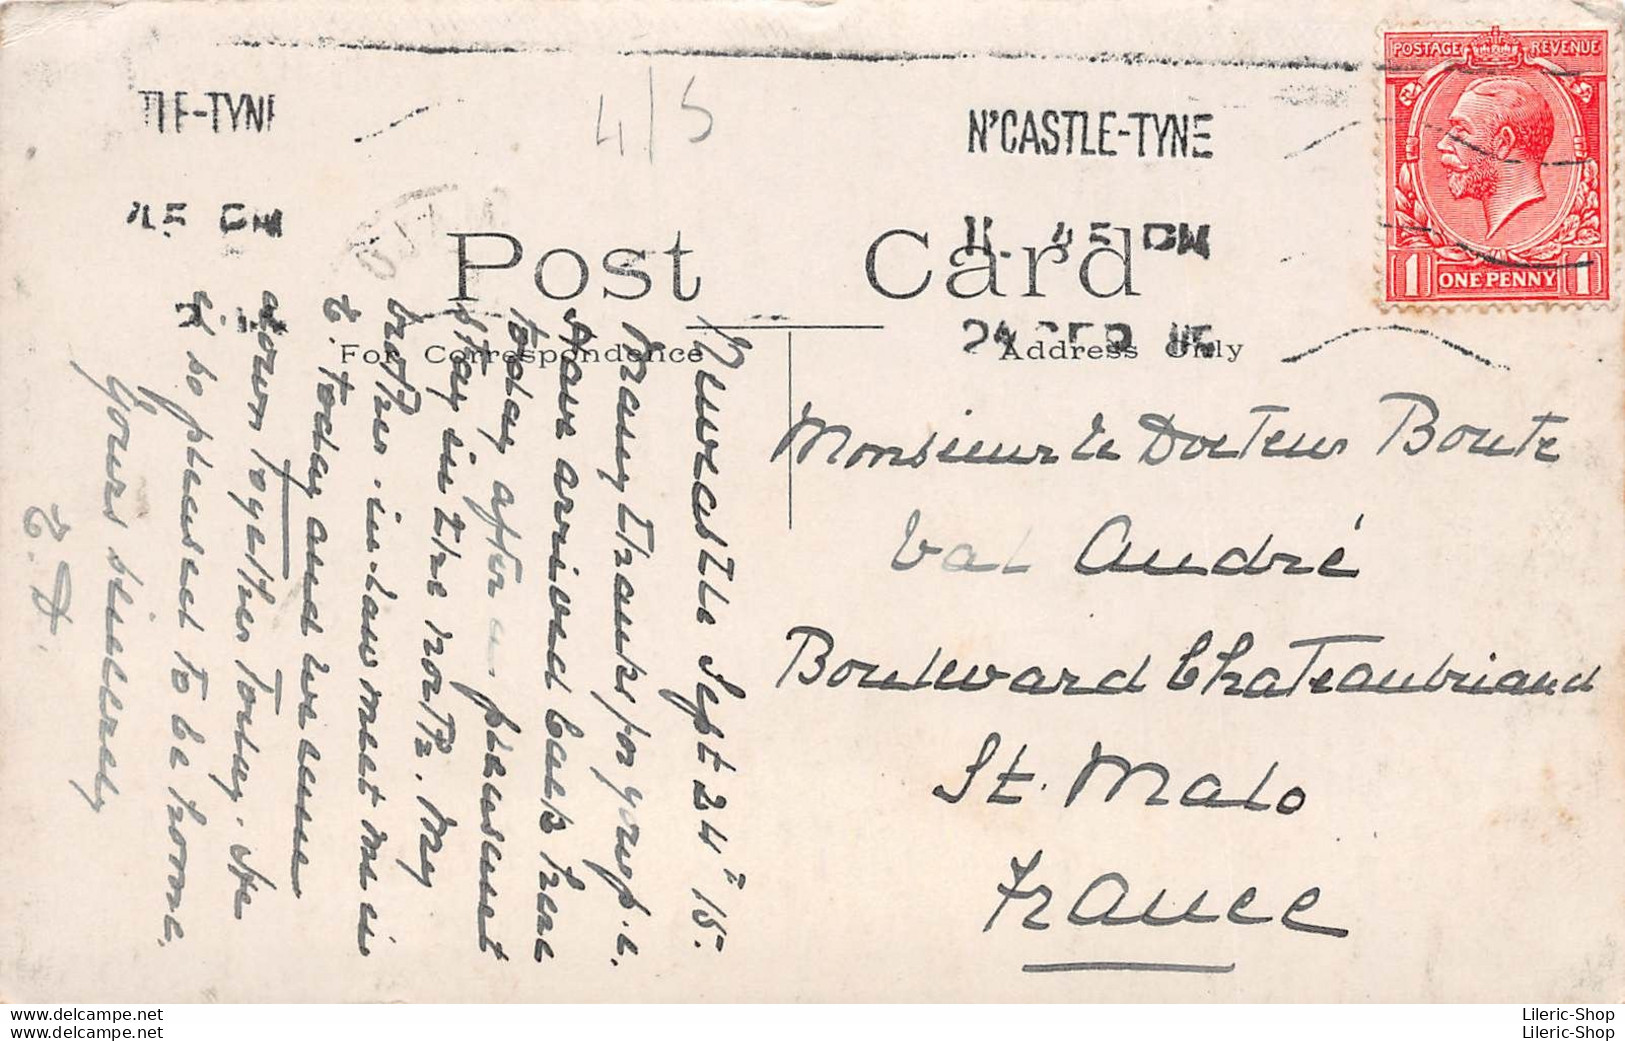 POSTAGE REVENUE
1 ONE PENNY 1
TLE-TYNE
N'CASTLE-TYNE
4/5
11. 45 PM
24 SEP 15
Post Card
For Correspondence
Address Only
Newcastle Sept 24th 15.
Many thanks for your p.c.
Have arrived back here
today after a pleasant
stay in the north. My
brother-in-law met me in
E. today and we came
down together today. He
is so pleased to be home.
Yours sincerely
Monsieur le Docteur Boute
Val André
Boulevard Chateaubriand
St. Malo
France
Lileric-Shop
Lileric-Shop
Lileric-Shop
Lileric-Shop